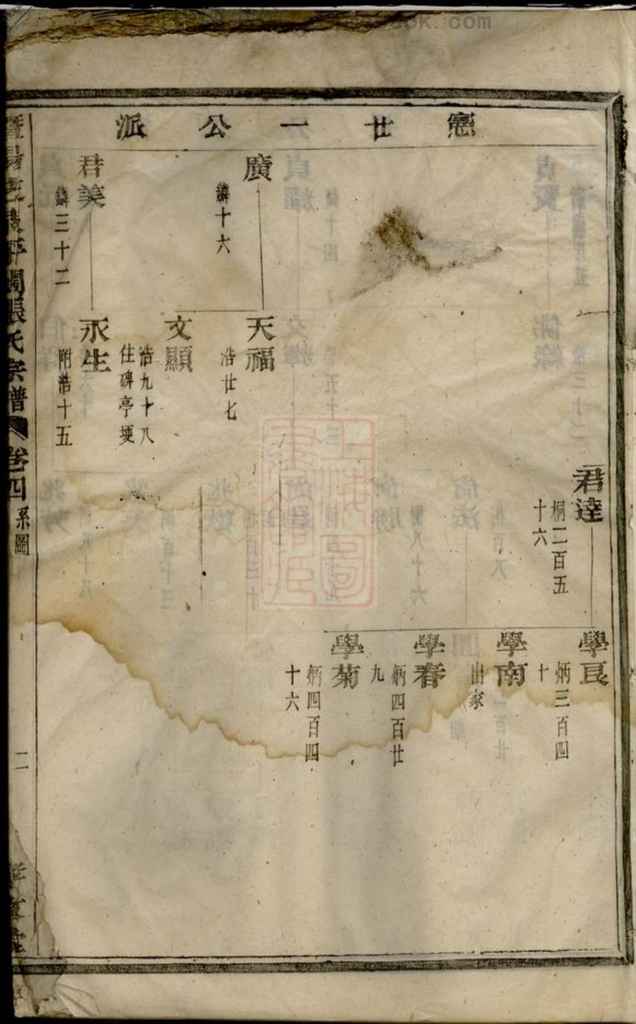 憲廿一公派
君達
桐二百五
十六
學良
炳三百四
十
學南
出家
學春
炳四百廿
九
學菊
炳四百四
十六
廣
鏻十六
天福
浩廿七
文顯
浩九十八
住碑亭埂
君美
鏻三十二
永生
附浩十五
張氏宗譜
卷四
系圖
二